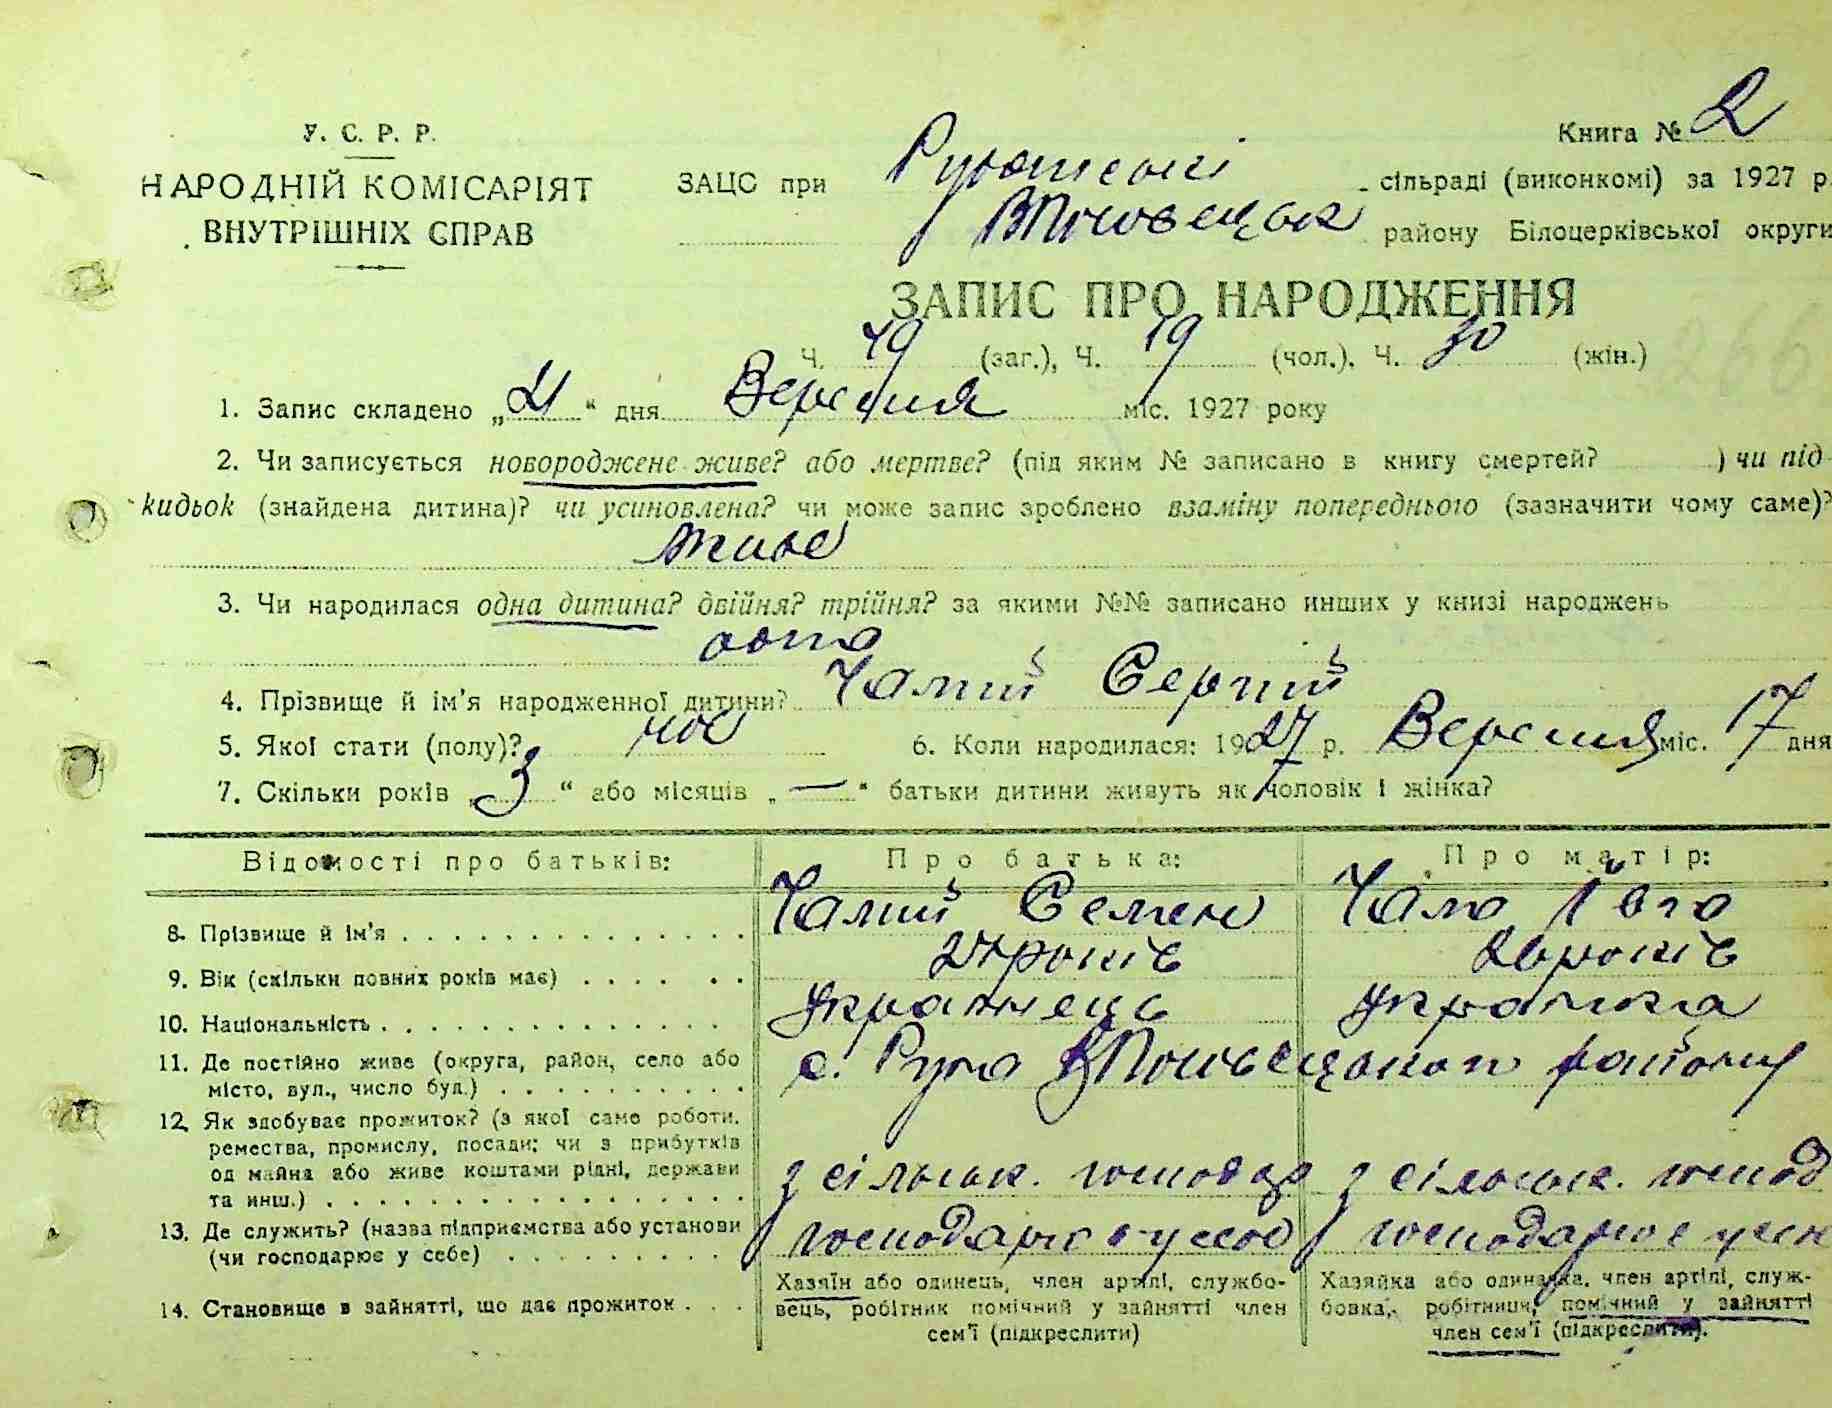 У. С. Р. Р.
НАРОДНІЙ КОМІСАРІЯТ
ВНУТРІШНІХ СПРАВ
Книга № 2
ЗАЦС при сільраді (виконкомі) за 1927 р.
району Білоцерківської округи
ЗАПИС ПРО НАРОДЖЕННЯ
Ч. 49 (заг.), Ч. 19 (чол.), Ч. 30 (жін.)
1. Запис складено „21“ дня Вересня міс. 1927 року
2. Чи записується новороджене живе? або мертве? (під яким № записано в книгу смертей? ) чи під-
кидьок (знайдена дитина)? чи усиновлена? чи може запис зроблено взаміну попереднього (зазначити чому саме)?
живе
3. Чи народилася одна дитина? двійня? трійня? за якими №№ записано инших у книзі народжень
одна
4. Прізвище й ім'я народженної дитини? Чалий Сергій
5. Якої стати (полу)? чол 6. Коли народилася: 1927 р. Вересня міс. 17 дня
7. Скільки років „3“ або місяців „—“ батьки дитини живуть як чоловік і жінка?
Відомості про батьків: Про батька: Про матір:
8. Прізвище й ім'я Чалий Семен Чала Ївга
9. Вік (скільки повних років має) 24 років 26 років
10. Національність українець українка
11. Де постійно живе (округа, район, село або
місто, вул., число буд.) с. Руда району
12. Як здобуває прожиток? (з якої саме роботи,
ремества, промислу, посади; чи з прибутків
од майна або живе коштами рідні, держави
та инш.) з сільськ. господар з сільськ. господ
13. Де служить? (назва підприємства або установи
(чи господарює у себе) господарює у себе господарює у себе
14. Становище в зайнятті, що дає прожиток
Хазяїн або одинець, член артілі, службо-
вець, робітник помічний у зайнятті член
сем'ї (підкреслити)
Хазяйка або одиначка, член артілі, служ-
бовка, робітниця, помічний у зайнятті
член сем'ї (підкреслити).